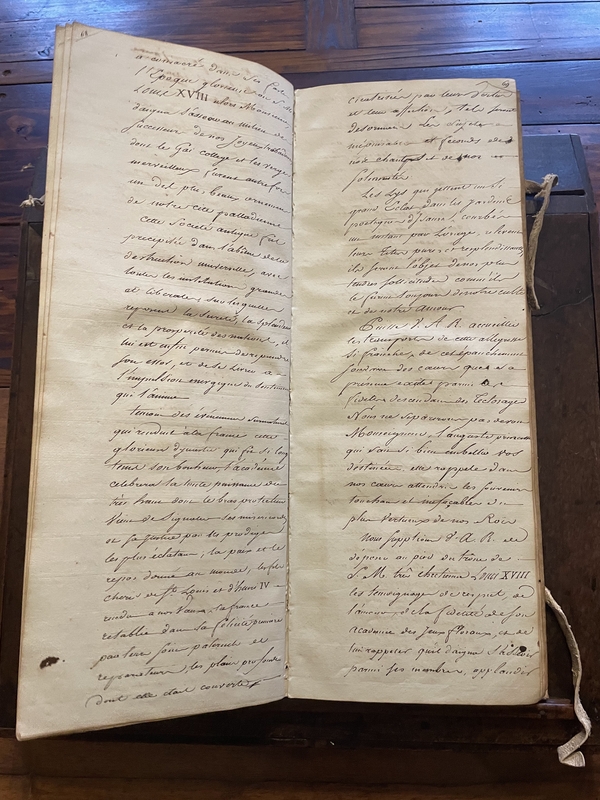 68
a consacré dans ses fastes
l'Epoque glorieuse ou
Louis XVIII alors Monsieur
daigna s'asseoir au milieu des
successeurs de nos joyeux
dont le Gai college et les verger
merveilleux furent autrefois
un des plus beaux ornemens
de notre cité palladienne
cette Société antique fut
precipitée dans l'abime de la
destruction universelle avec
toutes les institutions grandes
et liberales sur lesquelles
reposent la sureté, la splendeur
et la prosperité des nations, il
lui est enfin permis de reprendre
son essor, et de se livrer à
l'impulsion energique du sentiment
qui l'anime.
Temoin des évenemens
qui rendent à la france cette
glorieuse dynastie qui fit si long
tems son bonheur, l'académie
celebrera la toute puissance du
très haut dont le bras protecteur
vient de signaler ses misericordes
ou sa justice par les prodiges
les plus éclatans; la paix et le
repos donné au monde, les fils
cheris de St. Louis et d'henri IV
rendus a nos Vœux, la france
retablie dans sa felicité premiere
par leurs soins paternels et
reparateurs, les plaies profondes
dont elle etait couverte
69
cicatrisées par leurs vertus
et leur affection, tels seront
desormais les sujets
inépuisables et feconds de
nos chants et de nos
solennités.
Les Lys qui jettent un si
grand Eclat dans les jardins
poetiques d'Isaure, courbés
un instant par l'orage, relevent
leurs tetes pures et resplendissantes,
ils seront l'objet de nos plus
tendres sollicitudes comme ils
le furent toujours de notre culte
et de notre amour
Puisse V. A. R. accueillir
les transports de cette allegresse
si franche, de cet épanchement
soudain des cœurs que sa
presence excite parmi les
fideles descendans des Tectosages
Nous ne separerons pas de vous
Monseigneur, l'auguste
qui sait si bien embellir vos
destinées, elle rappele dans
nos cœurs attendris les souvenirs
touchans et ineffaçables du
plus vertueux de nos Rois
Nous supplions V. A. R. de
deposer au pied du trône de
S. M. très chretienne Louis XVIII
les temoignages de respect, de
l'amour, et de la fidelité de son
academie des Jeux floraux, et de
lui rappeler qu'il daigna
parmi ses membres, applaudir